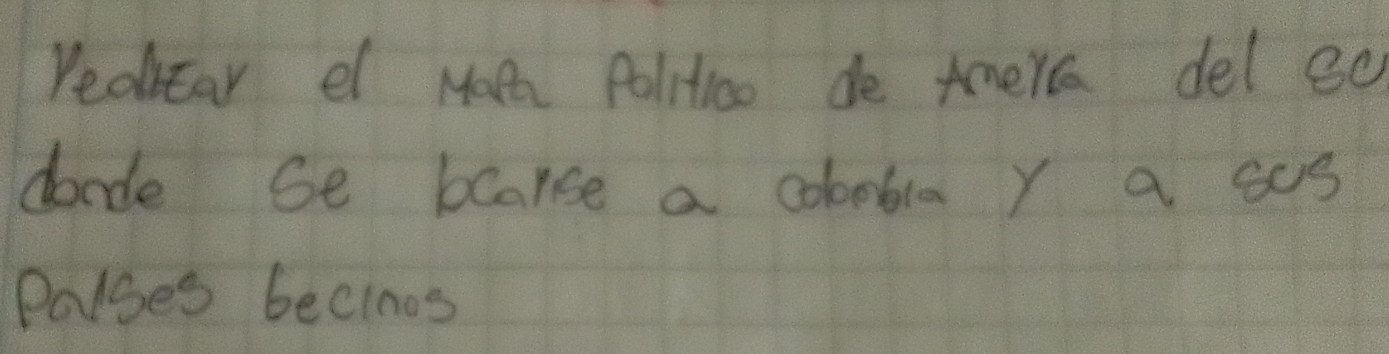 realizar el Mapa Politico de America del su
donde se bcarise a colombia y a sus
Paises becinos